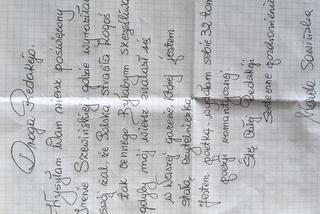 Droga Redakcjo.
Przysyłam Wam wiersz poświęcony
Irenie Szewińskiej gdzie wyraziłam
swój żal, że Polska straciła kogoś
tak cennego. Byłabym szczęśliwa
gdyby mój wiersz znalazł się
w Waszej gazecie, której jestem
stałą czytelniczką.
Jestem poetką, wydałam sobie 32 tomy
poezji romantycznej.
Serdecznie pozdrawiam